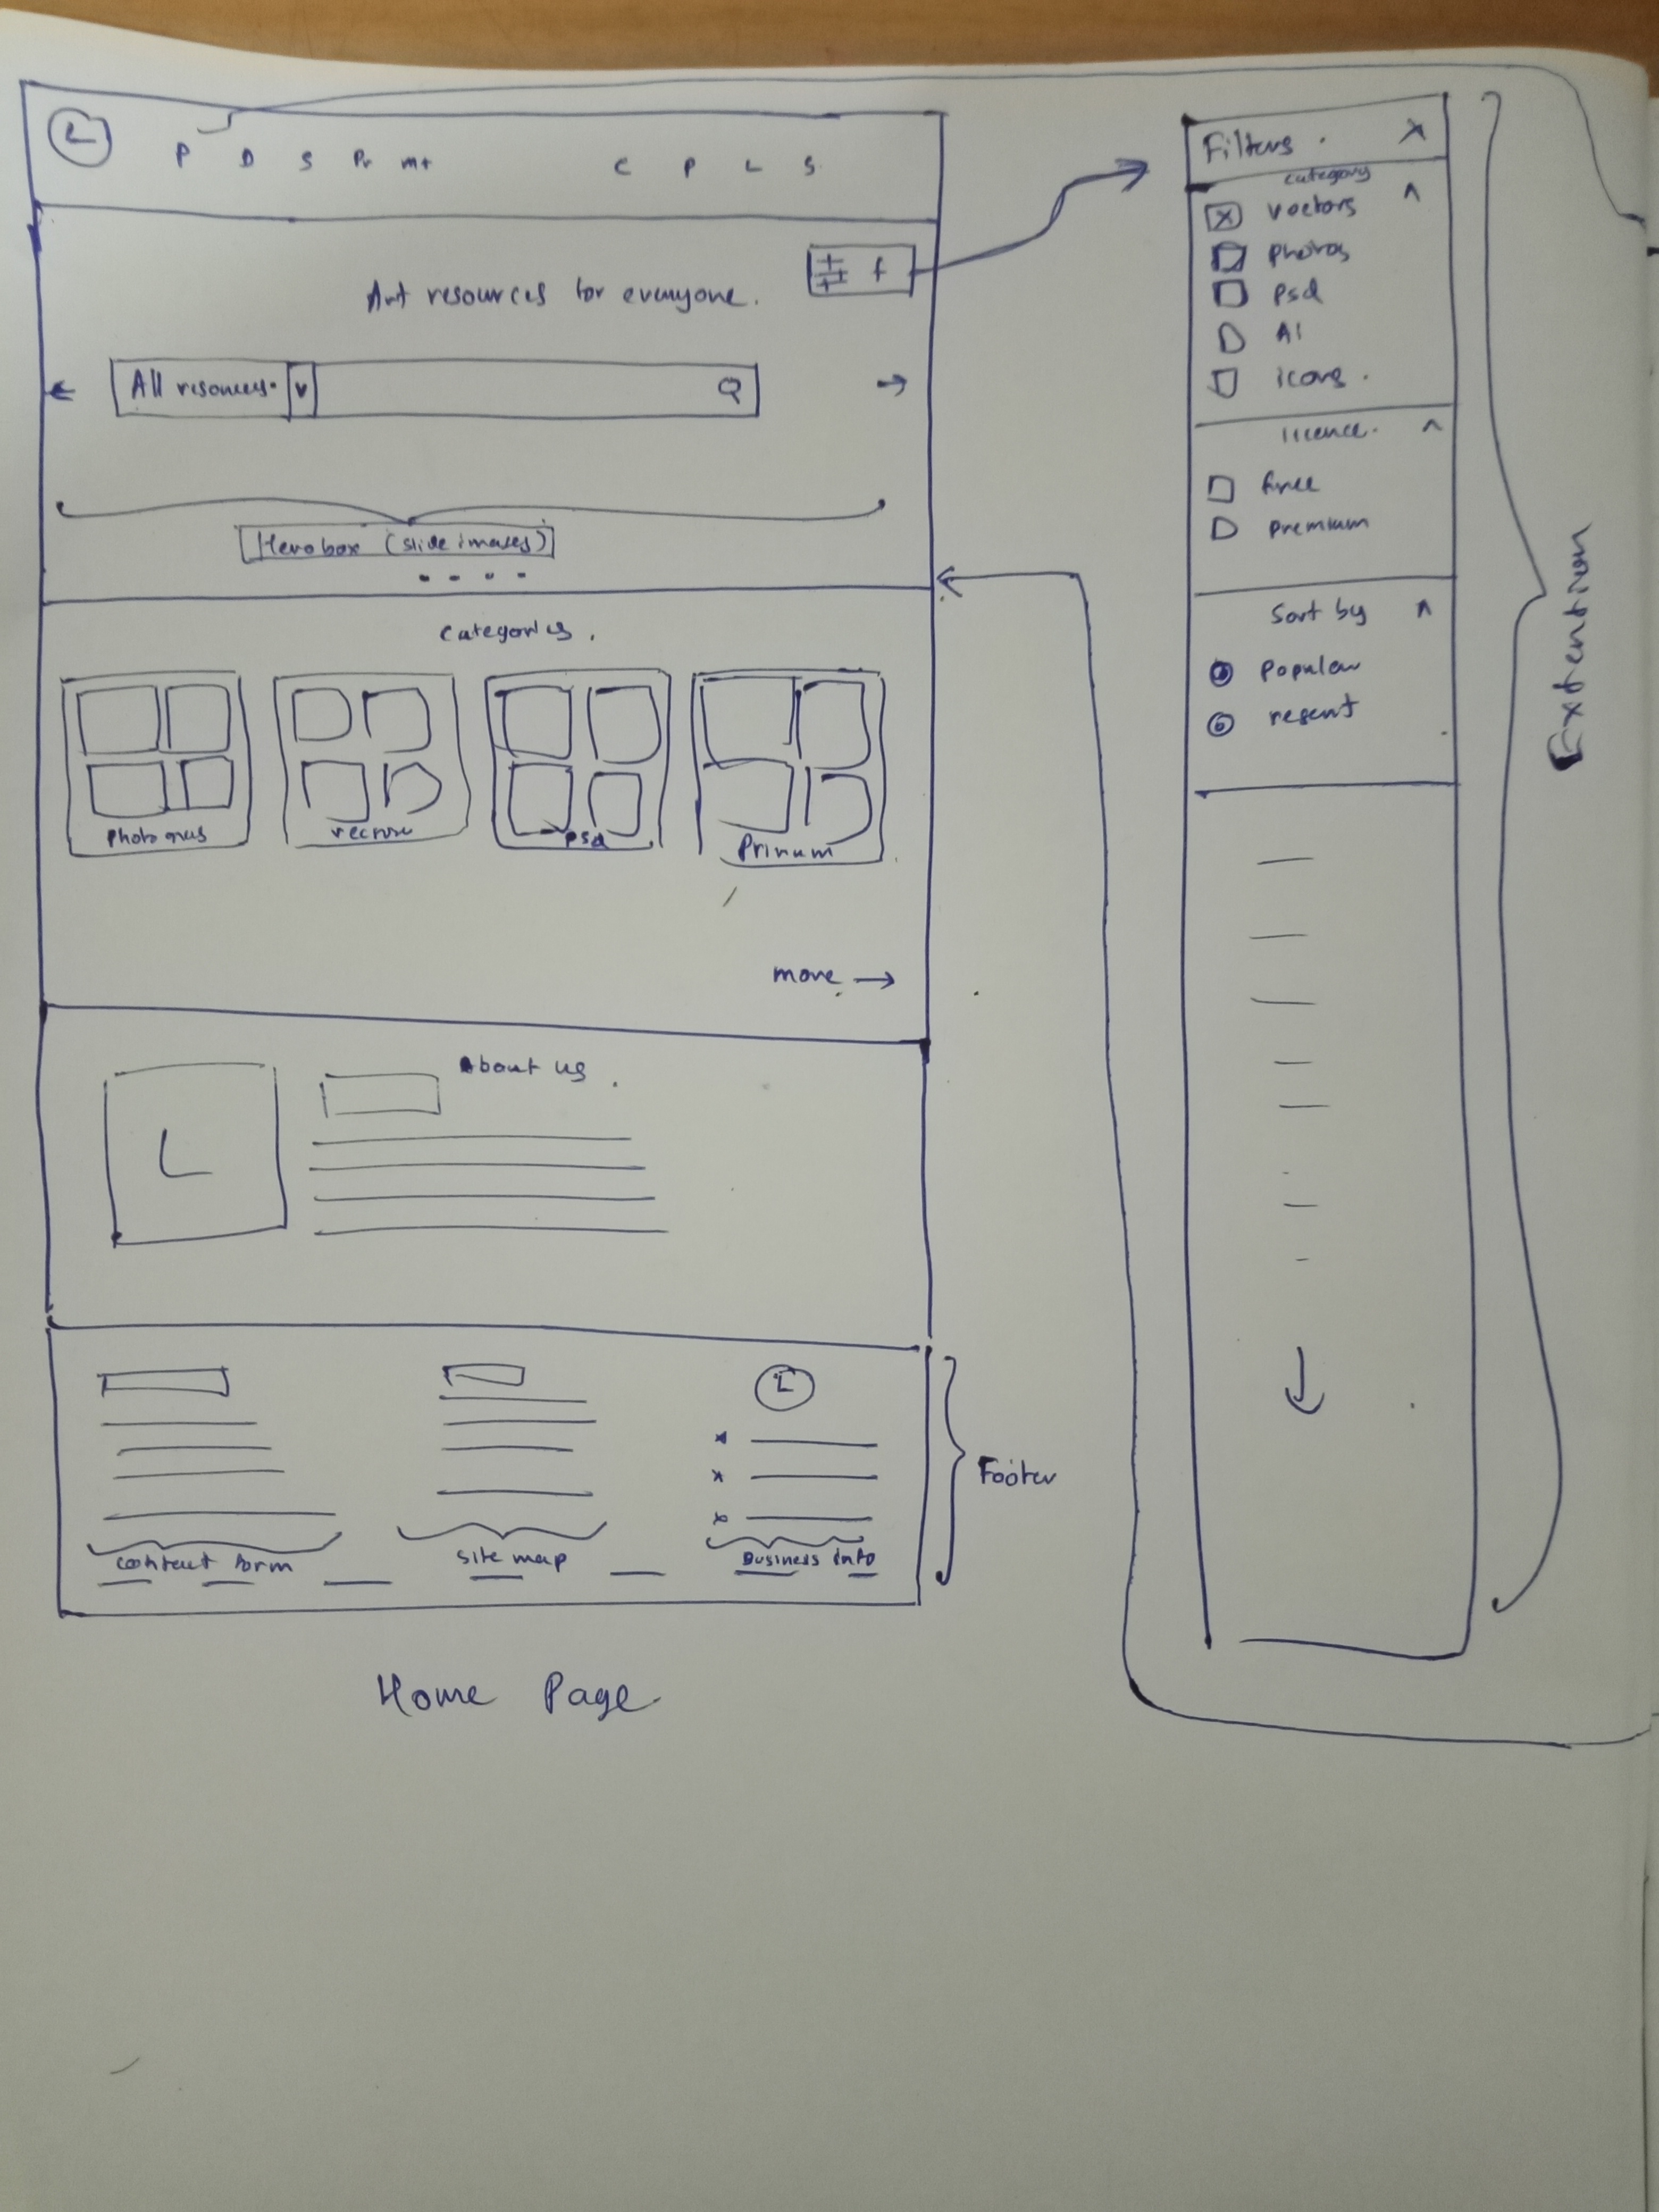 L
P D S Pr m+ C P L S
f
Art resources for everyone.
All resources.
Hero box (slide images)
Categories.
Photo
psd
more
About us.
L
L
contact form
site map
Business info
Footer
Home Page
Filters. X
category
vectors
photos
psd
AI
icons.
licence.
free
premium
Sort by
popular
resent
Extention